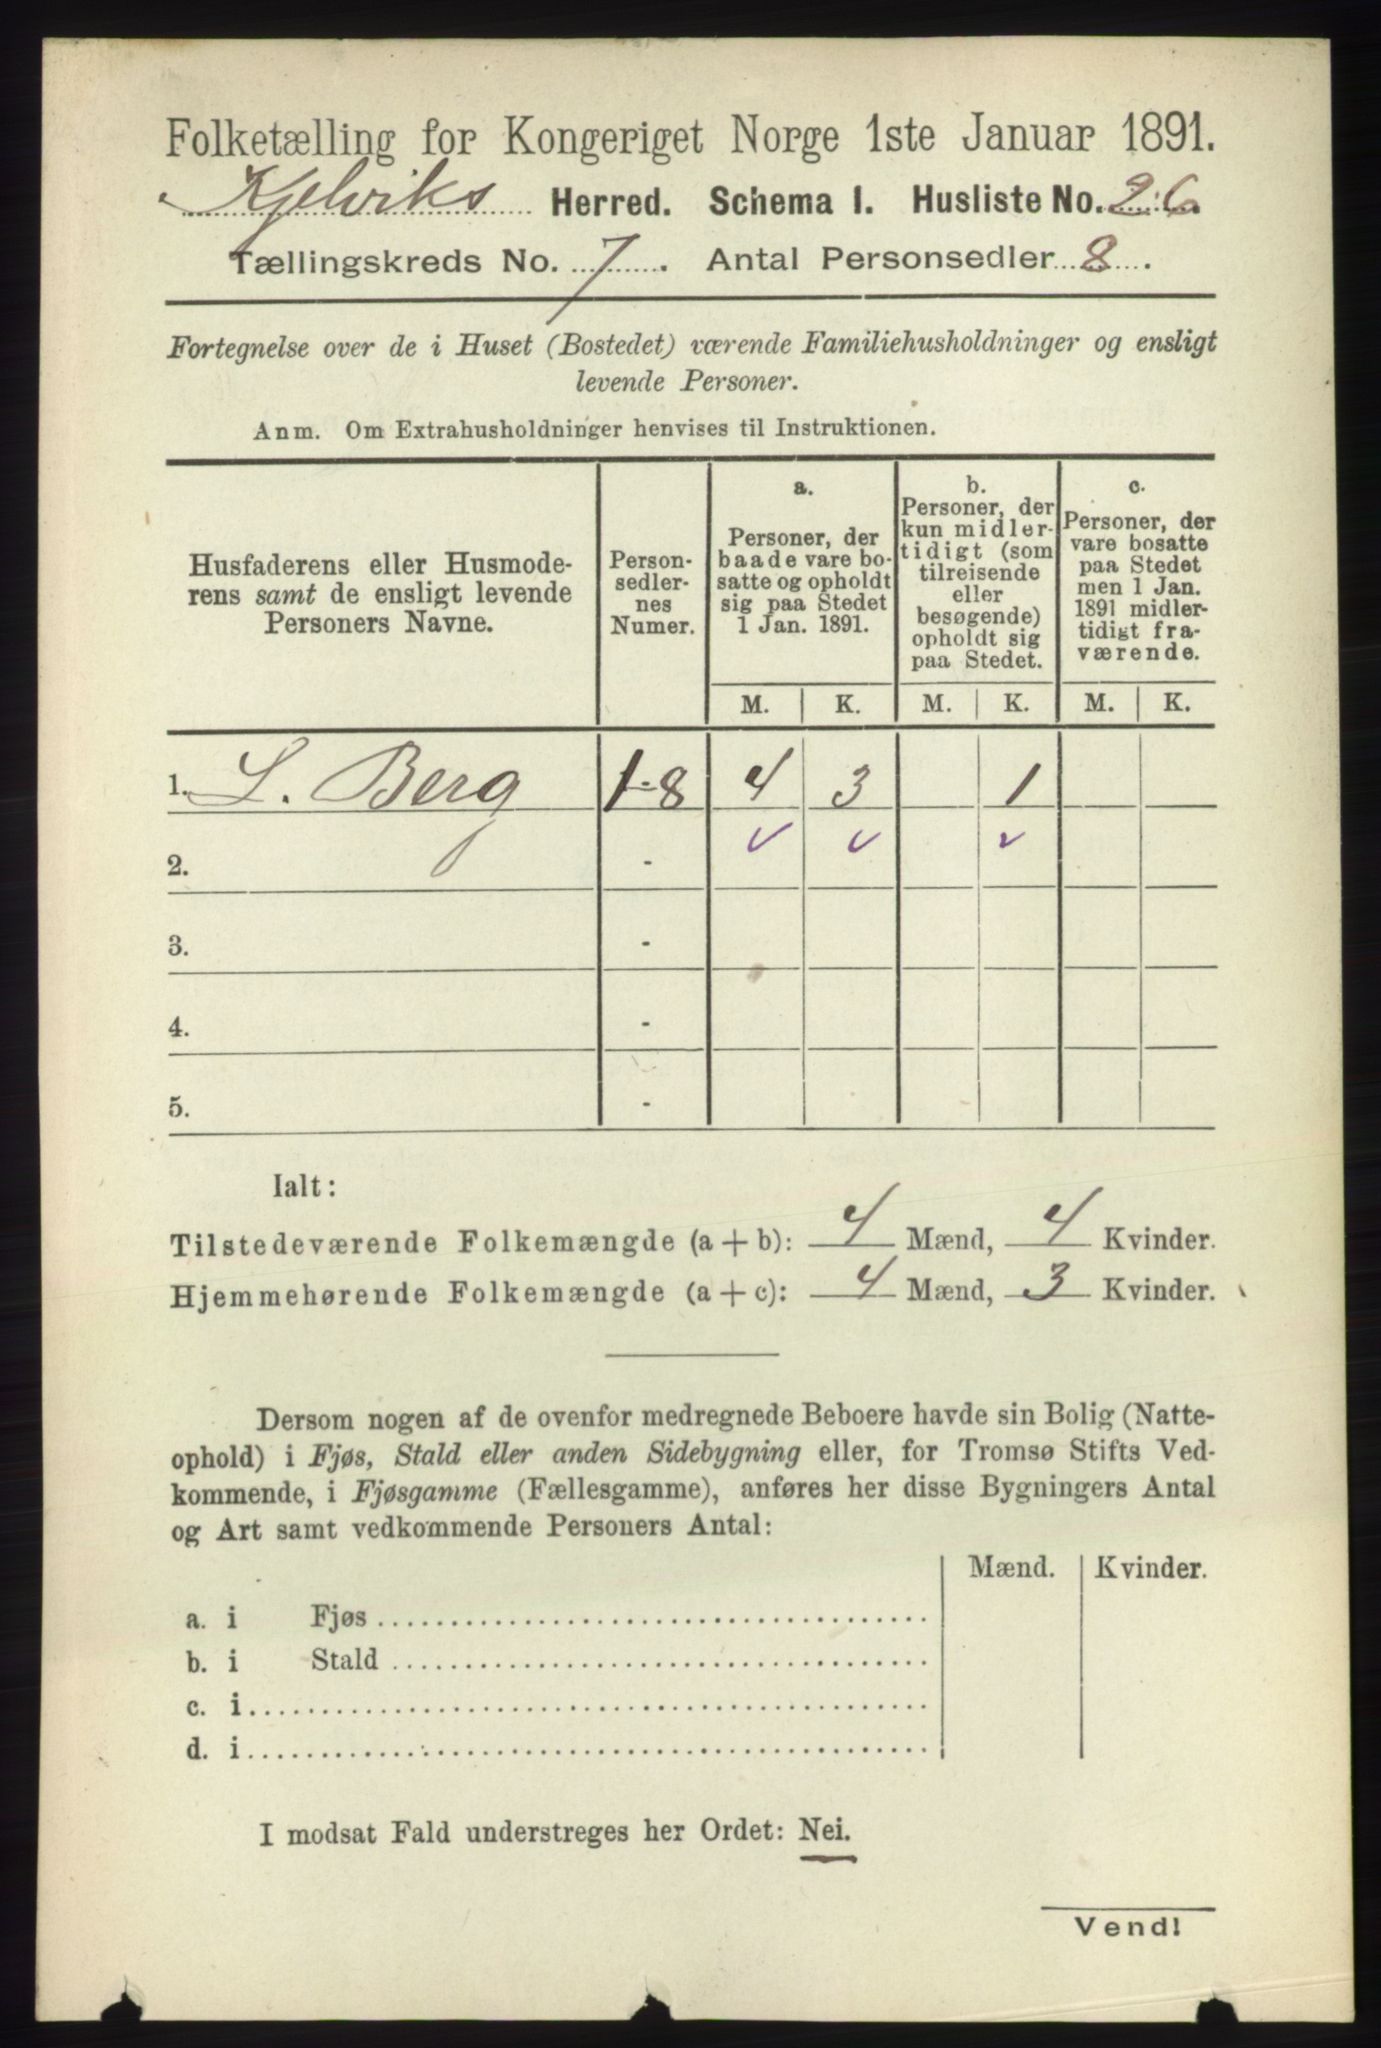 Folketælling for Kongeriget Norge 1ste Januar 1891.
Kjelviks Herred. Schema I. Husliste No. 26
Tællingskreds No. 7. Antal Personsedler 8.
Fortegnelse over de i Huset (Bostedet) værende Familiehusholdninger og ensligt
levende Personer.
Anm. Om Extrahusholdninger henvises til Instruktionen.
Husfaderens eller Husmode-
rens samt de ensligt levende
Personers Navne.
Person-
sedler-
nes
Numer.
a.
Personer, der
baade vare bo-
satte og opholdt
sig paa Stedet
1 Jan. 1891.
b.
Personer, der
kun midler-
tidigt (som
tilreisende
eller
besøgende)
opholdt sig
paa Stedet.
c.
Personer, der
vare bosatte
paa Stedet
men 1 Jan.
1891 midler-
tidigt fra-
værende.
M. K. M. K. M. K.
1. L. Berg 1-8 4 3 1
2. -
3. -
4. -
5. -
Ialt:
Tilstedeværende Folkemængde (a + b): 4 Mænd, 4 Kvinder.
Hjemmehørende Folkemængde (a + c): 4 Mænd, 3 Kvinder.
Dersom nogen af de ovenfor medregnede Beboere havde sin Bolig (Natte-
ophold) i Fjøs, Stald eller anden Sidebygning eller, for Tromsø Stifts Ved-
kommende, i Fjøsgamme (Fællesgamme), anføres her disse Bygningers Antal
og Art samt vedkommende Personers Antal:
Mænd. Kvinder.
a. i Fjøs
b. i Stald
c. i
d. i
I modsat Fald understreges her Ordet: Nei.
Vend!